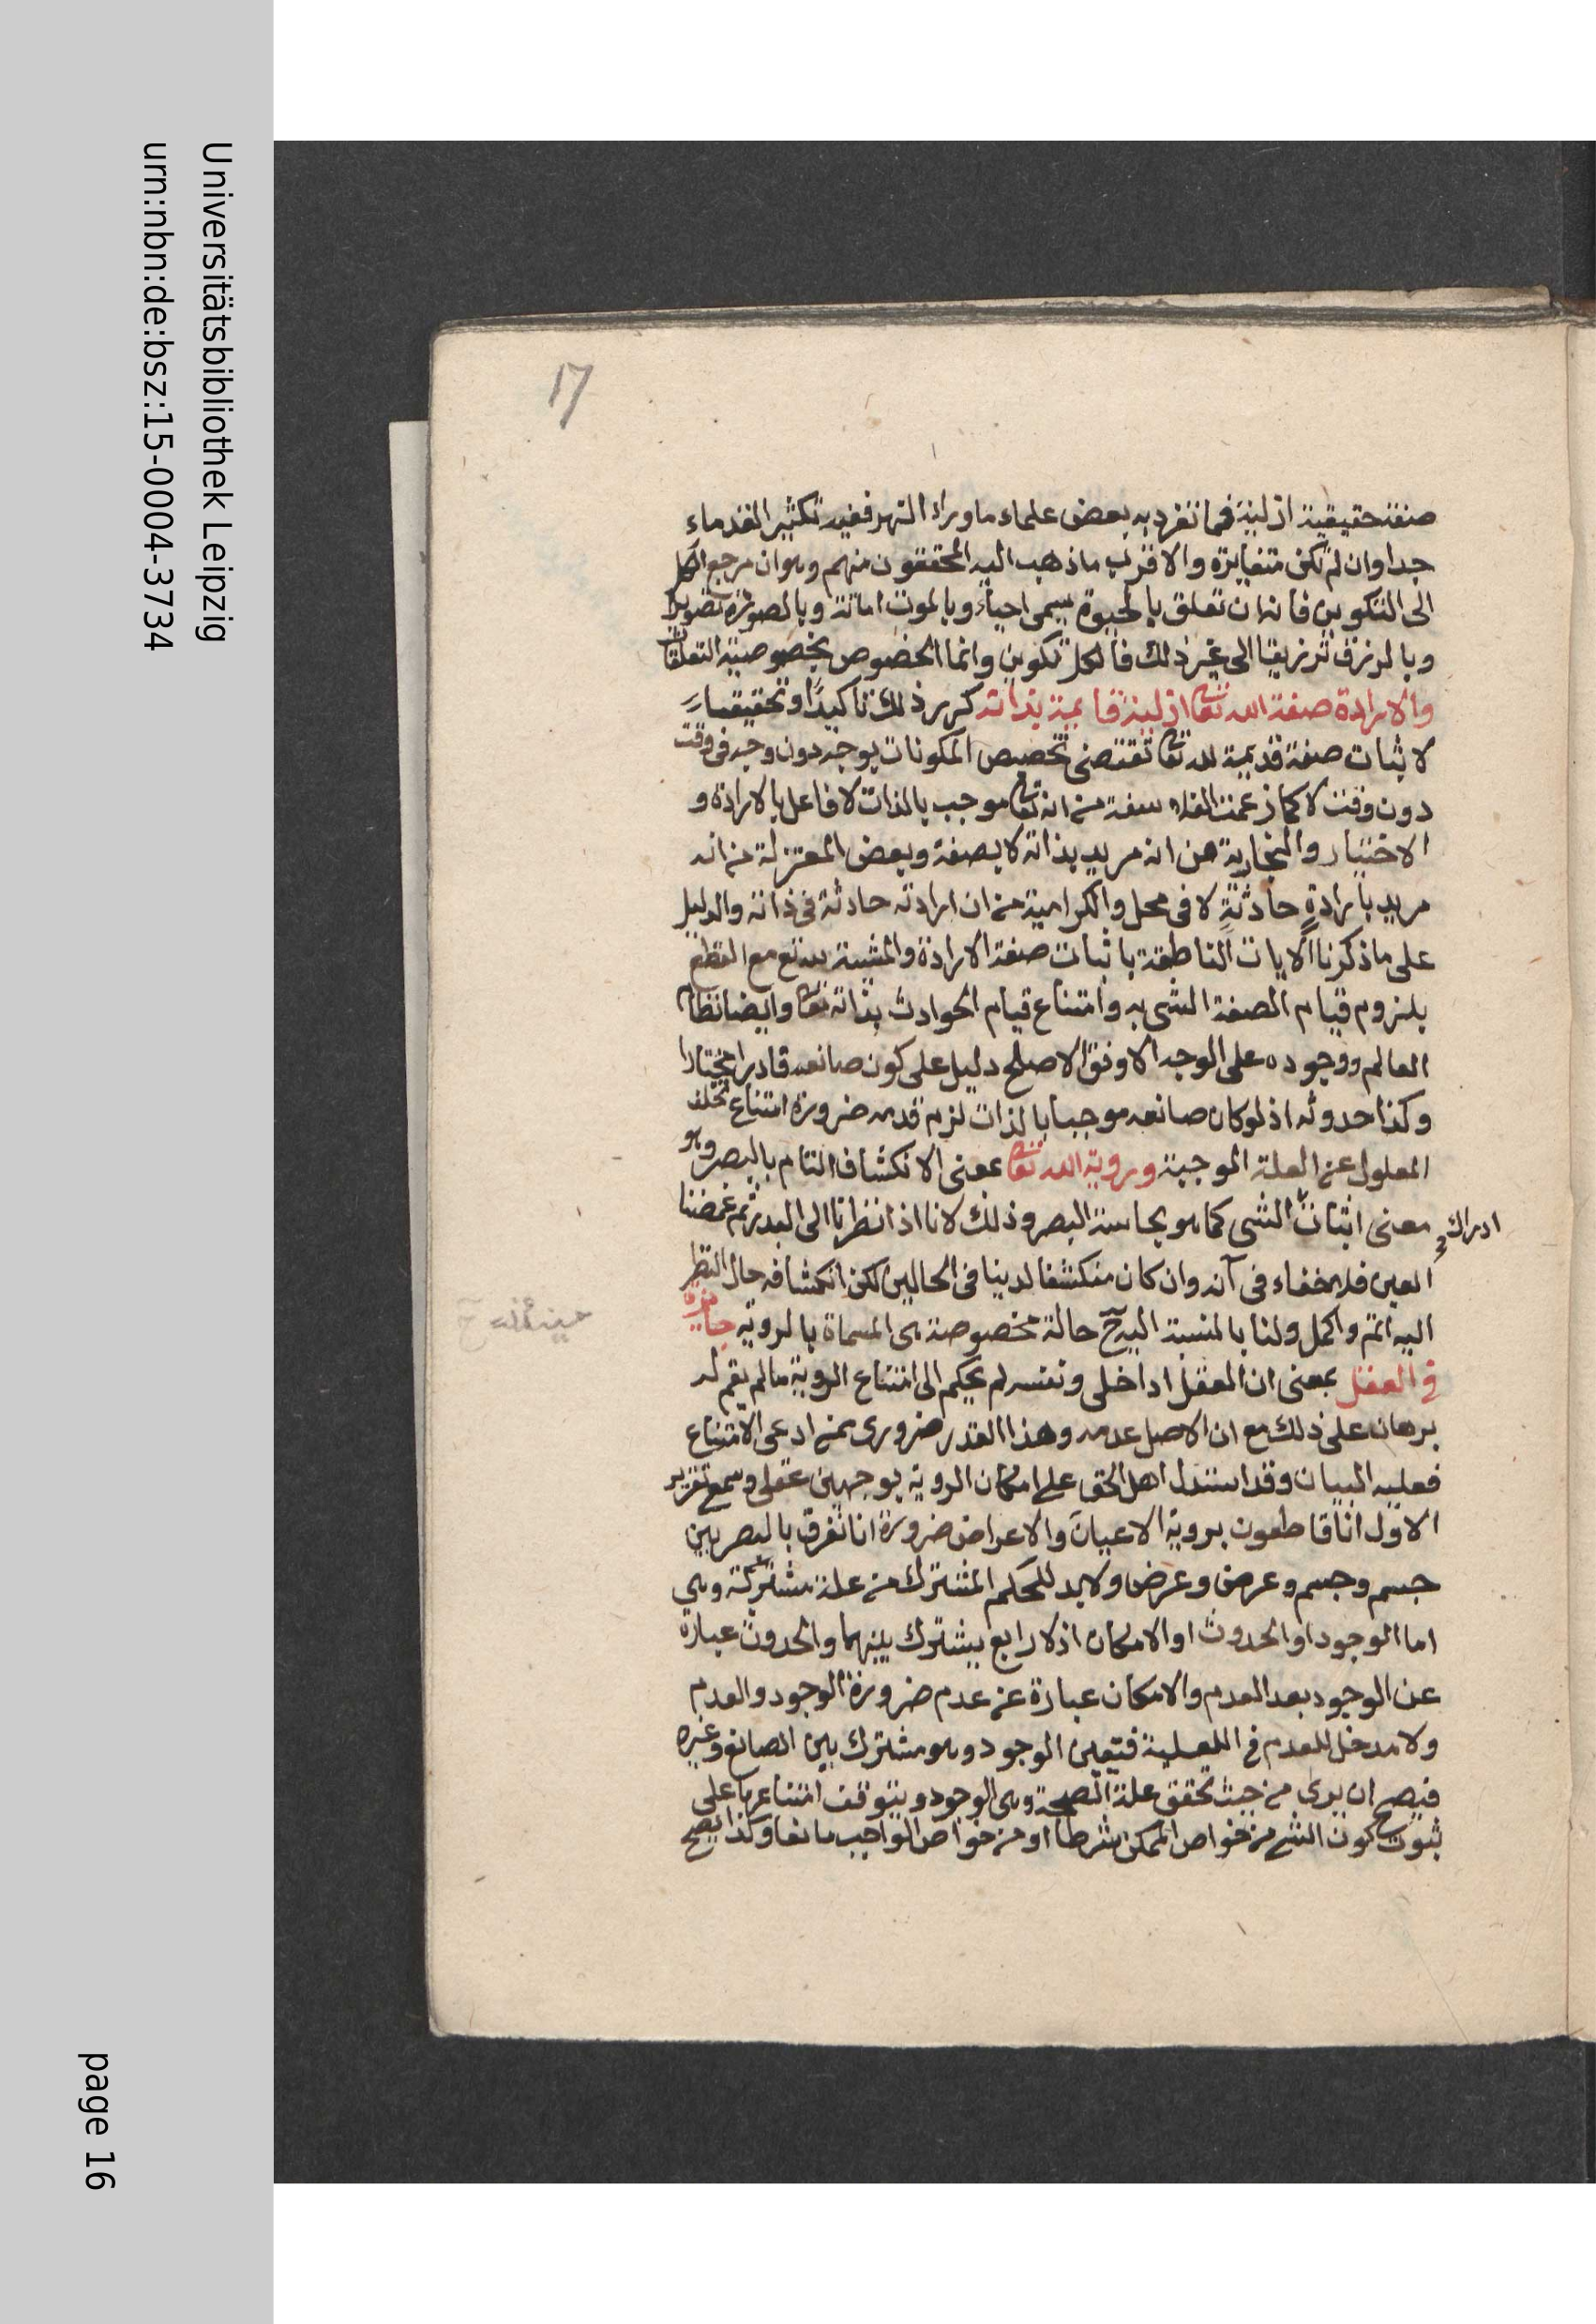 17
صفة حقيقية ازلية فمما تفرد به بعض علماء ما وراء النهر ففيه تكثير القدماء
جدا وان لم تكن متغايرة والاقرب ما ذهب اليه المحققون منهم وهو ان مرجع الكل
الى التكوين فانه ان تعلق بالحيوة يسمى احياء وبالموت اماتة وبالصورة تصويرا
وبالرزق ترزيقا الى غير ذلك فالكل تكوين وانما الخصوص بخصوصية التعلقات
والارادة صفة الله تعالى ازلية قايمة بذاته كرر ذلك تاكيدًا وتحقيقا
لاثبات صفة قديمة لله تعالى تقتضى تخصيص المكونات بوجه دون وجه فى وقت
دون وقت لا كما زعمت الفلاسفة من انه تعالى موجب بالذات لا فاعل بالارادة و
الاختيار والنجارية من انه مريد بذاته لا بصفة وبعض المعتزلة من انه
مريد بارادةٍ حادثةٍ لا فى محل والكرامية من ان ارادته حادثة فى ذاته والدليل
على ما ذكرنا الايات الناطقة باثبات صفة الارادة والمشية لله تع مع القطع
بلزوم قيام الصفة الشى به وامتناع قيام الحوادث بذاته تعالى وايضا نظام
العالم ووجوده على الوجه الاوفق الاصلح دليل على كون صانعه قادرا مختارا
وكذا حدوثه اذ لو كان صانعه موجبا بالذات لزم قدمه ضرورة امتناع تخلف
المعلول عن العلة الموجبة وروية الله تعالى بمعنى الانكشاف التام بالبصر وهو
معنى اثبات الشى كما هو بحاسة البصر وذلك لانا اذا نظرنا الى البدر ثم غمضنا
ادراك
العين فلا خفاء فى انه وان كان منكشفا لدينا فى الحالين لكن انكشافه حال النظر
اليه اتم واكمل ولنا بالنسبة اليه ح حالة مخصوصة هى المسماة بالروية جايزة
فى العقل بمعنى ان العقل اذا خلى ونفسه لم يحكم الى امتناع الروية ما لم يقم له
برهان على ذلك مع ان الاصل عدمه وهذا القدر ضرورى فمن ادعى الامتناع
فعليه البيان وقد استدل اهل الحق على امكان الروية بوجهين عقلى وسمعى تقرير
الاول انا قاطعون بروية الاعيان والاعراض ضرورة انا نفرق بالبصر بين
جسم وجسم وعرض وعرض ولابد للحكم المشترك من علة مشتركة وهى
اما الوجود او الحدوث او الامكان اذ لا رابع يشترك بينهما والحدوث عبارة
عن الوجود بعد العدم والامكان عبارة عن عدم ضرورة الوجود والعدم
ولا مدخل للعدم فى العلية فتعين الوجود وهو مشترك بين الصانع وغيره
فيصح ان يرى من حيث تحقق علة الصحة وهى الوجود ويتوقف امتناعها على
ثبوت كون الشى من خواص الممكن شرطا او من خواص الواجب مانعا وكذا يصح
Universitätsbibliothek Leipzig
urn:nbn:de:bsz:15-0004-3734
page 16